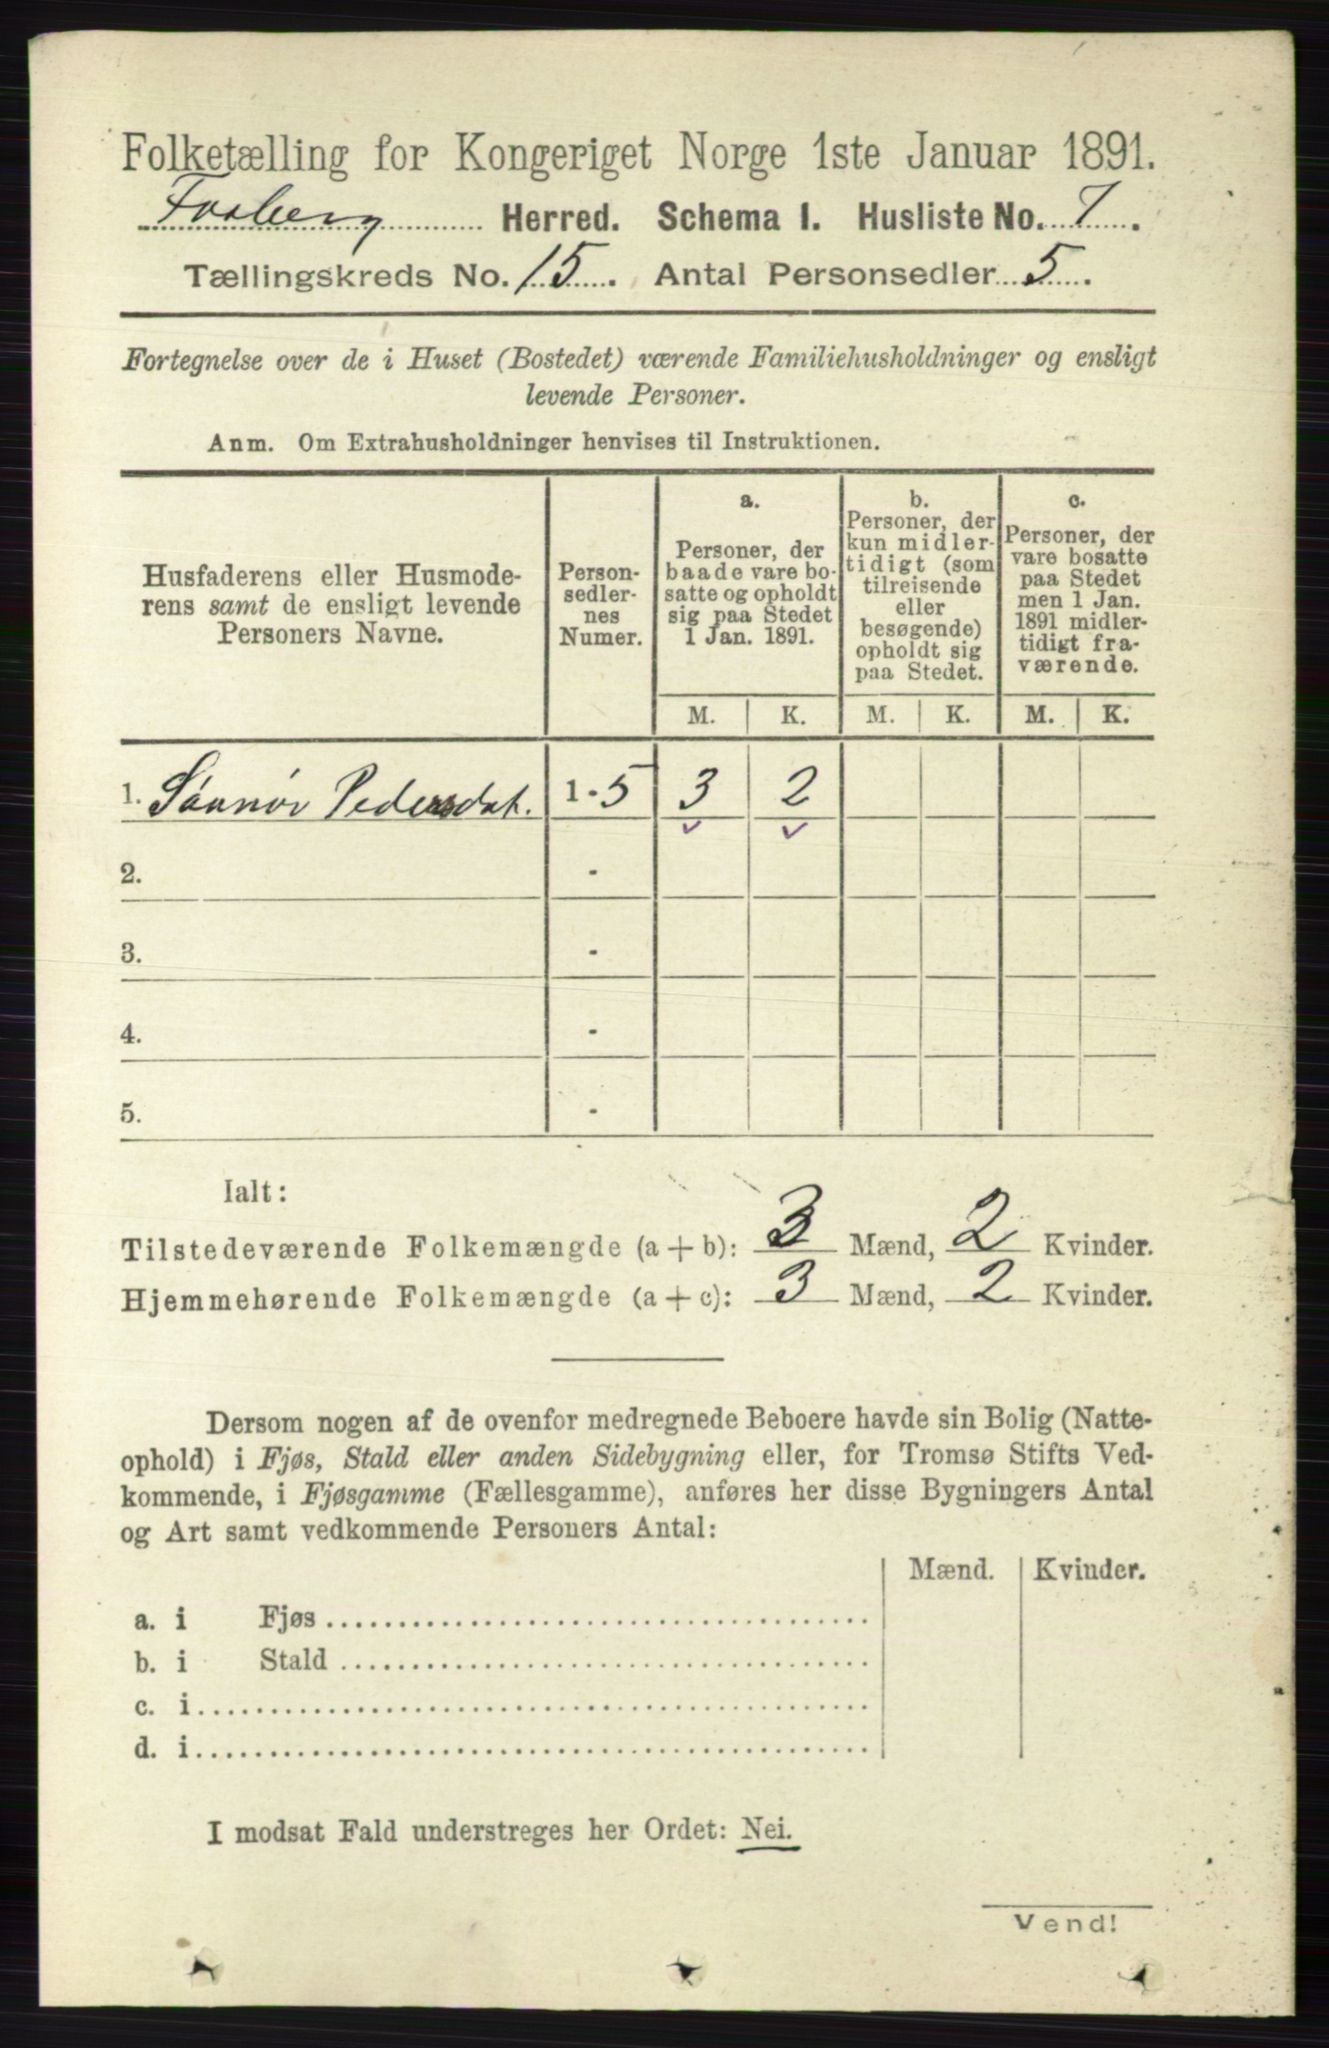 Folketælling for Kongeriget Norge 1ste Januar 1891.
Fosberg Herred. Schema I. Husliste No. 7.
Tællingskreds No. 15. Antal Personsedler 5.
Fortegnelse over de i Huset (Bostedet) værende Familiehusholdninger og ensligt
levende Personer.
Anm. Om Extrahusholdninger henvises til Instruktionen.
Husfaderens eller Husmode-
rens samt de ensligt levende
Personers Navne.
Person-
sedler-
nes
Numer.
a.
Personer, der
baade vare bo-
satte og opholdt
sig paa Stedet
1 Jan. 1891.
b.
Personer, der
kun midler-
tidigt (som
tilreisende
eller
besøgende)
opholdt sig
paa Stedet.
c.
Personer, der
vare bosatte
paa Stedet
men 1 Jan.
1891 midler-
tidigt fra-
værende.
M. K. M. K. M. K.
1. Sønnøv Pedersdat. 1-5 3 2
2. -
3. -
4. -
5. -
Ialt:
Tilstedeværende Folkemængde (a + b): 3 Mænd, 2 Kvinder.
Hjemmehørende Folkemængde (a + c): 3 Mænd, 2 Kvinder.
Dersom nogen af de ovenfor medregnede Beboere havde sin Bolig (Natte-
ophold) i Fjøs, Stald eller anden Sidebygning eller, for Tromsø Stifts Ved-
kommende, i Fjøsgamme (Fællesgamme), anføres her disse Bygningers Antal
og Art samt vedkommende Personers Antal:
Mænd. Kvinder.
a. i Fjøs
b. i Stald
c. i
d. i
I modsat Fald understreges her Ordet: Nei.
Vend!